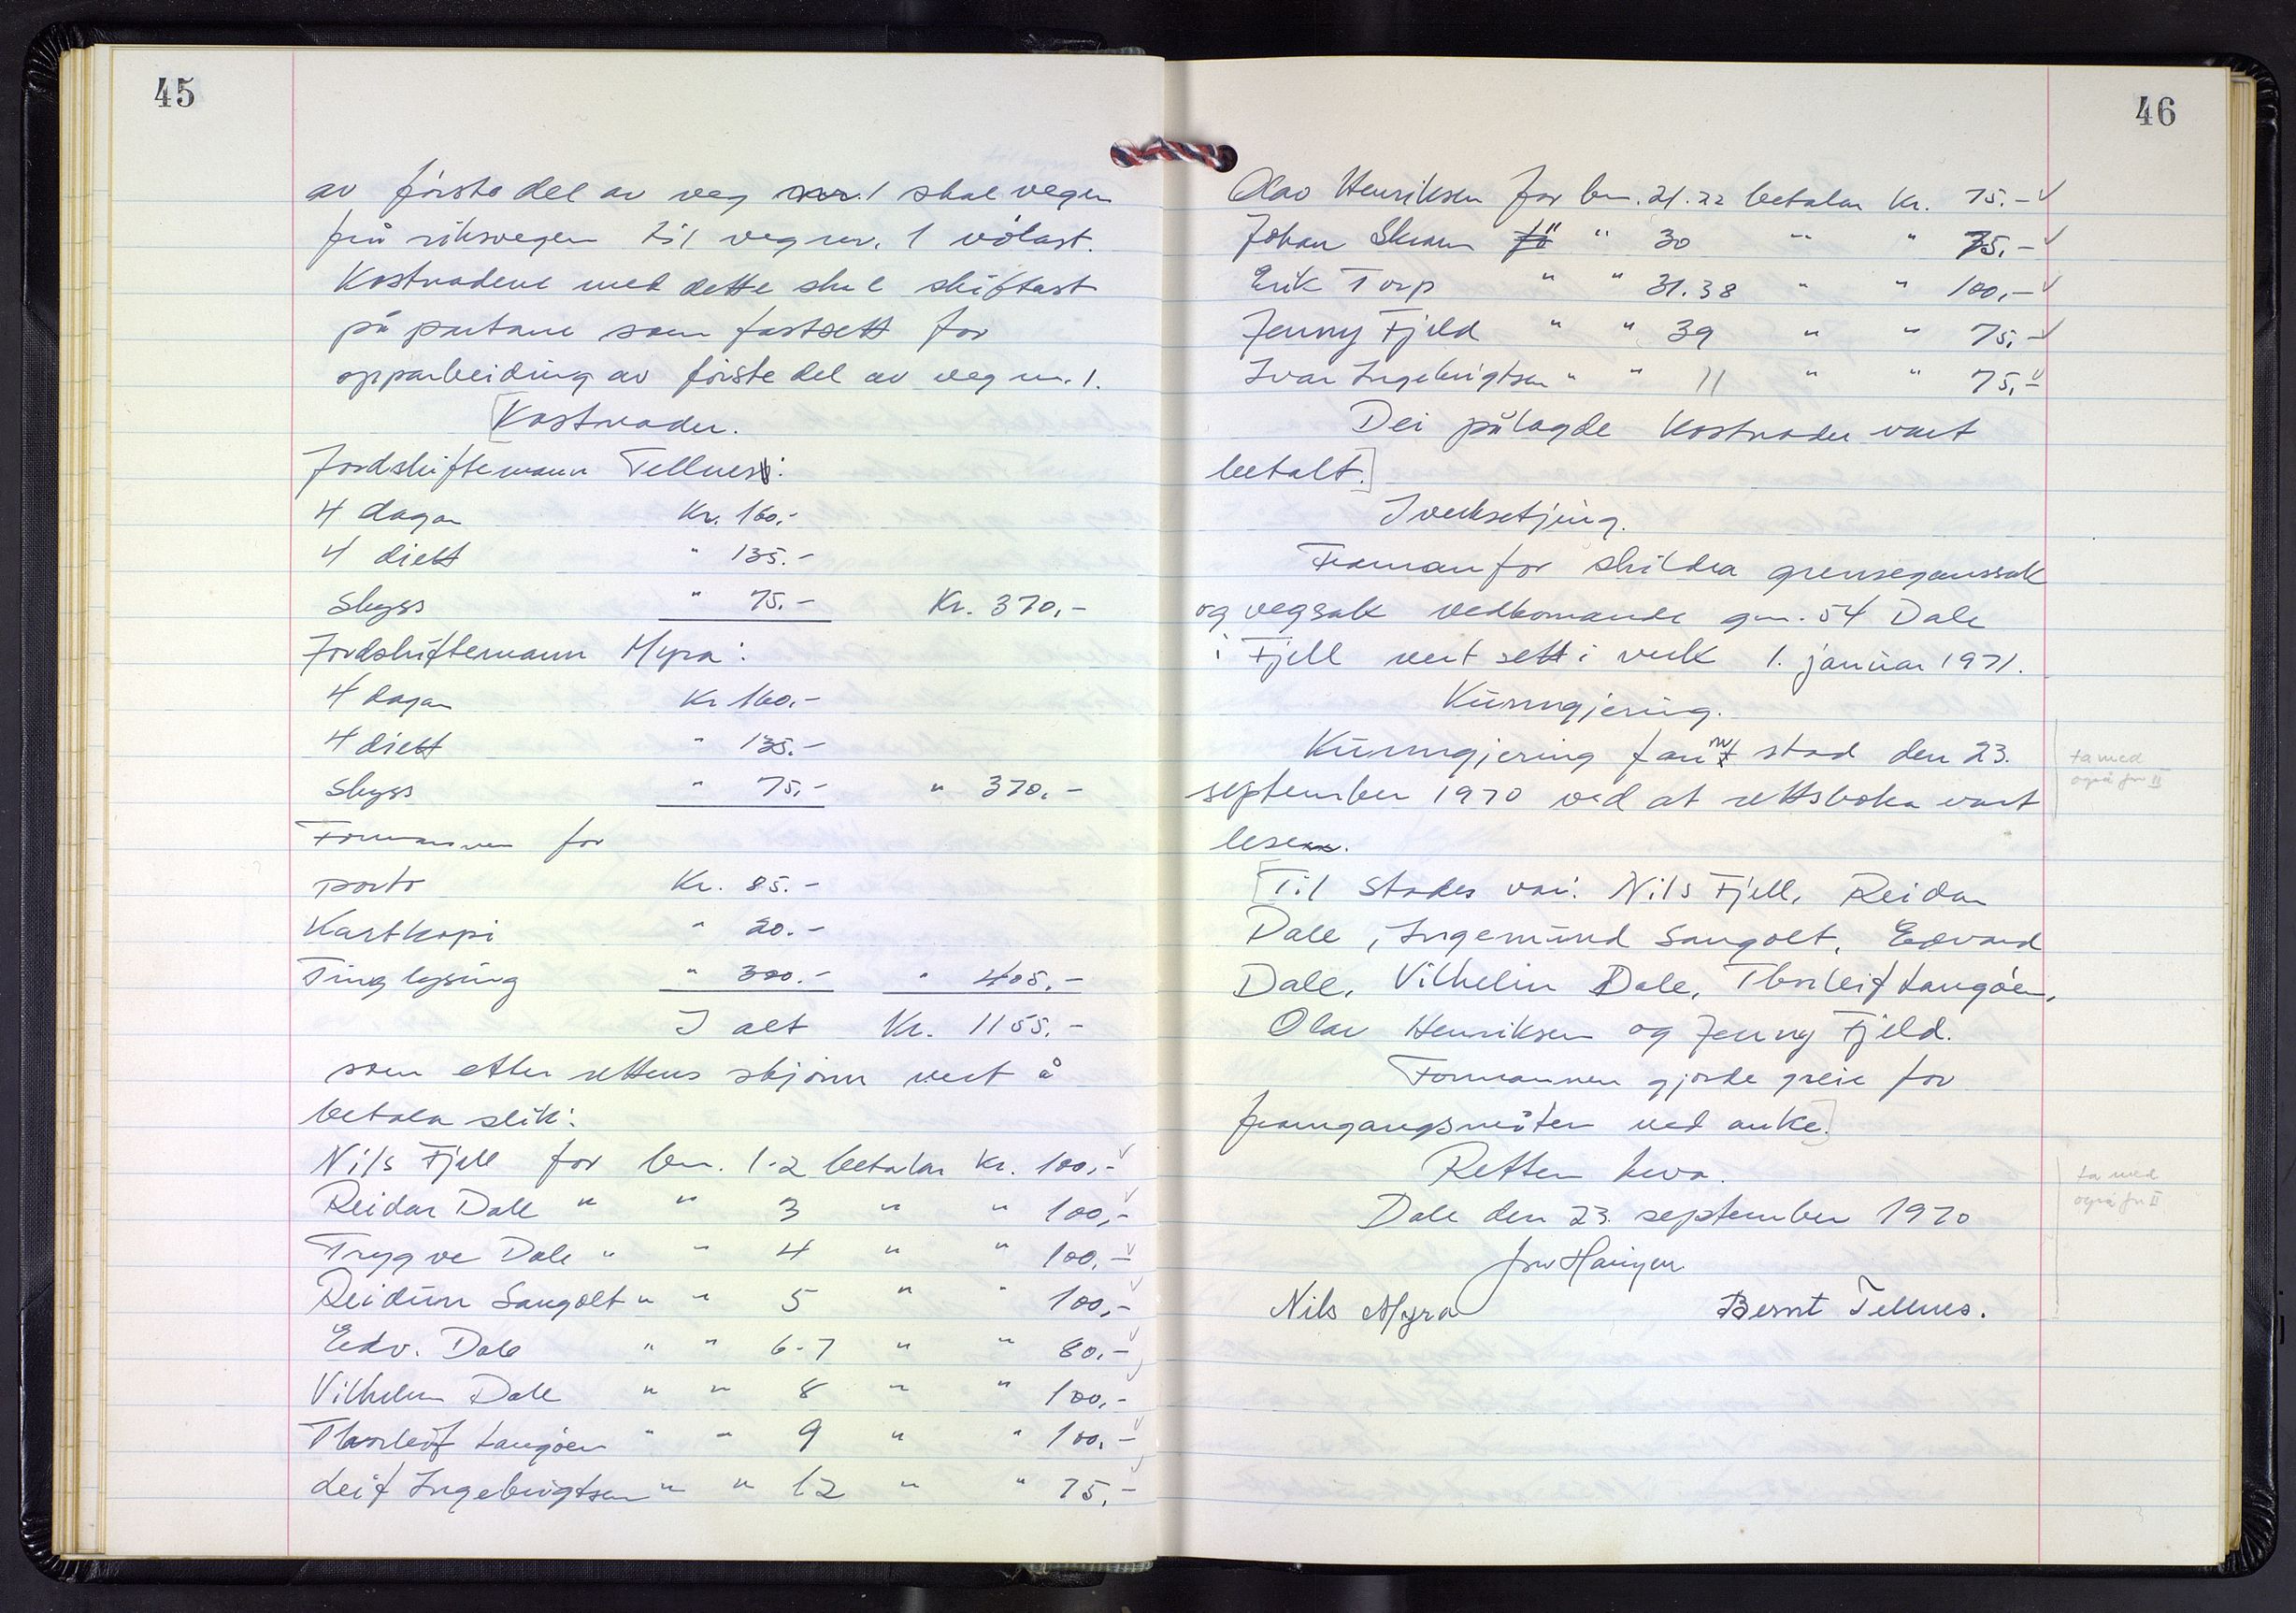 45
av første del av veg nr. 1 skal vegen
frå riksvegen til veg nr. 1 vølast.
Kostnadene med dette skal skiftast
på partane som fastsett for
opparbeiding av første del av veg nr. 1.
[Kostnader.
Jordskiftemann Tellnes:
4 dagar Kr. 160.-
4 diett " 135.-
Skyss " 75.- Kr. 370,-
Jordskiftemann Myra:
4 dagar Kr 160.-
4 diett " 135.-
Skyss " 75,- " 370.-
Formannen for
porto Kr. 85.-
Kartkopi " 20.-
Tinglysing " 300.- " 405.-
I alt Kr. 1155.-
som etter rettens skjønn vert å
betala slik:
Nils Fjell for bnr. 1-2 betalar Kr. 100,-
Reidar Dale " " 3 " " 100,-
Trygve Dale " " 4 " " 100,-
Reidun Sangolt " " 5 " " 100,-
Edv. Dale " " 6-7 " " 80,-
Vilhelm Dale " " 8 " " 100,-
Thorleif Langøen " " 9 " " 100,-
Leif Ingebrigtsen " " 12 " " 75,-
46
Olav Henriksen for bnr. 21.22 betalar Kr. 75.-
Johan Skram " " 30 " " 75,-
Erik Torp " " 31.38 " " 100,-
Jenny Fjeld " " 39 " " 75,-
Ivar Ingebrigtsen " " 11 " " 75,-
Dei pålagde kostnader vart
betalt.]
Iverksetjing.
Framanfor skildra grensegangssak
og vegsak vedkomande gnr. 54 Dale
i Fjell vert sett i verk 1. januar 1971.
Kunngjering.
Kunngjering fann stad den 23.
september 1970 ved at rettsboka vart
lesen.
[Til stades var: Nils Fjell, Reidar
Dale, Ingemund Sangolt, Edvard
Dale, Vilhelm Dale, Thorleif Langøen,
Olav Henriksen og Jenny Fjeld.
Formannen gjorde greie for
framgangsmåten ved anke.]
Retten heva.
Dale den 23. september 1970
Nils Myra Bernt Tellnes.
ta med
også for II
ta med
også for II